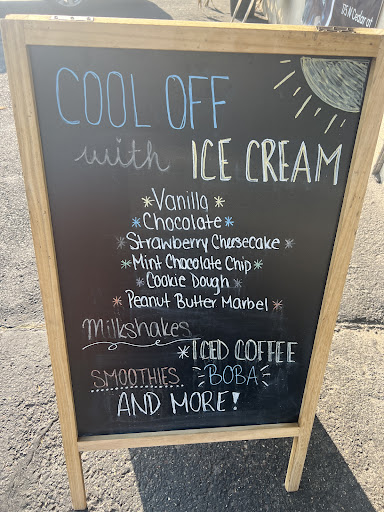 175 N Cedar st
COOL OFF
with ICE CREAM
Vanilla
Chocolate
Strawberry Cheesecake
Mint Chocolate Chip
Cookie Dough
Peanut Butter Marbel
Milkshakes
*ICED COFFEE
SMOOTHIES BOBA
AND MORE!